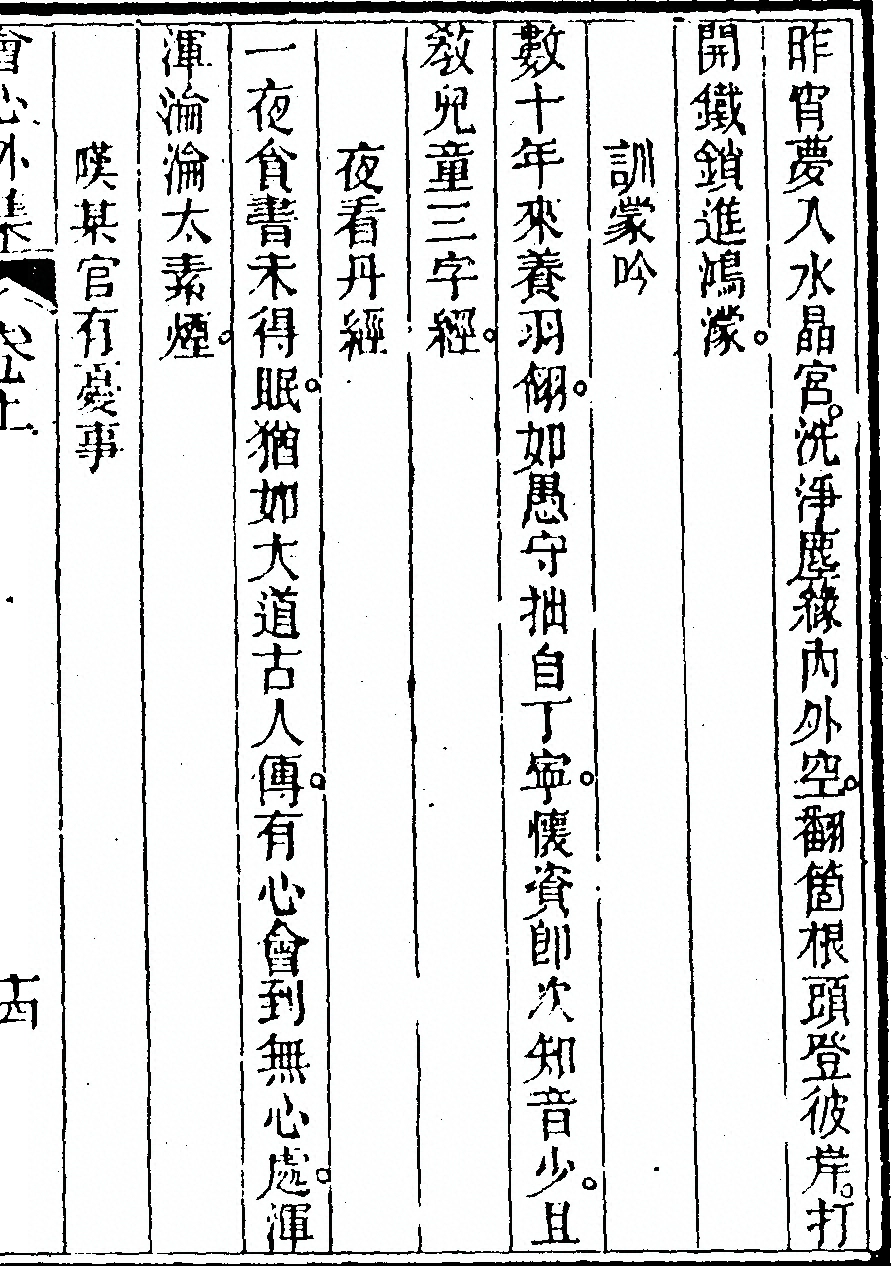 昨宵夢入水晶宮。洗淨塵緣內外空。翻箇根頭登彼岸。打
開鐵鎖進鴻濛。
訓蒙吟
數十年來養羽翎。如愚守拙自丁寧。懷資卽次知音少。且
敎兒童三字經。
夜看丹經
一夜貪書未得眠。猶如大道古人傳。有心會到無心處。渾
渾淪淪太素煙。
嘆某官有憂事
會心外集 卷上 十四